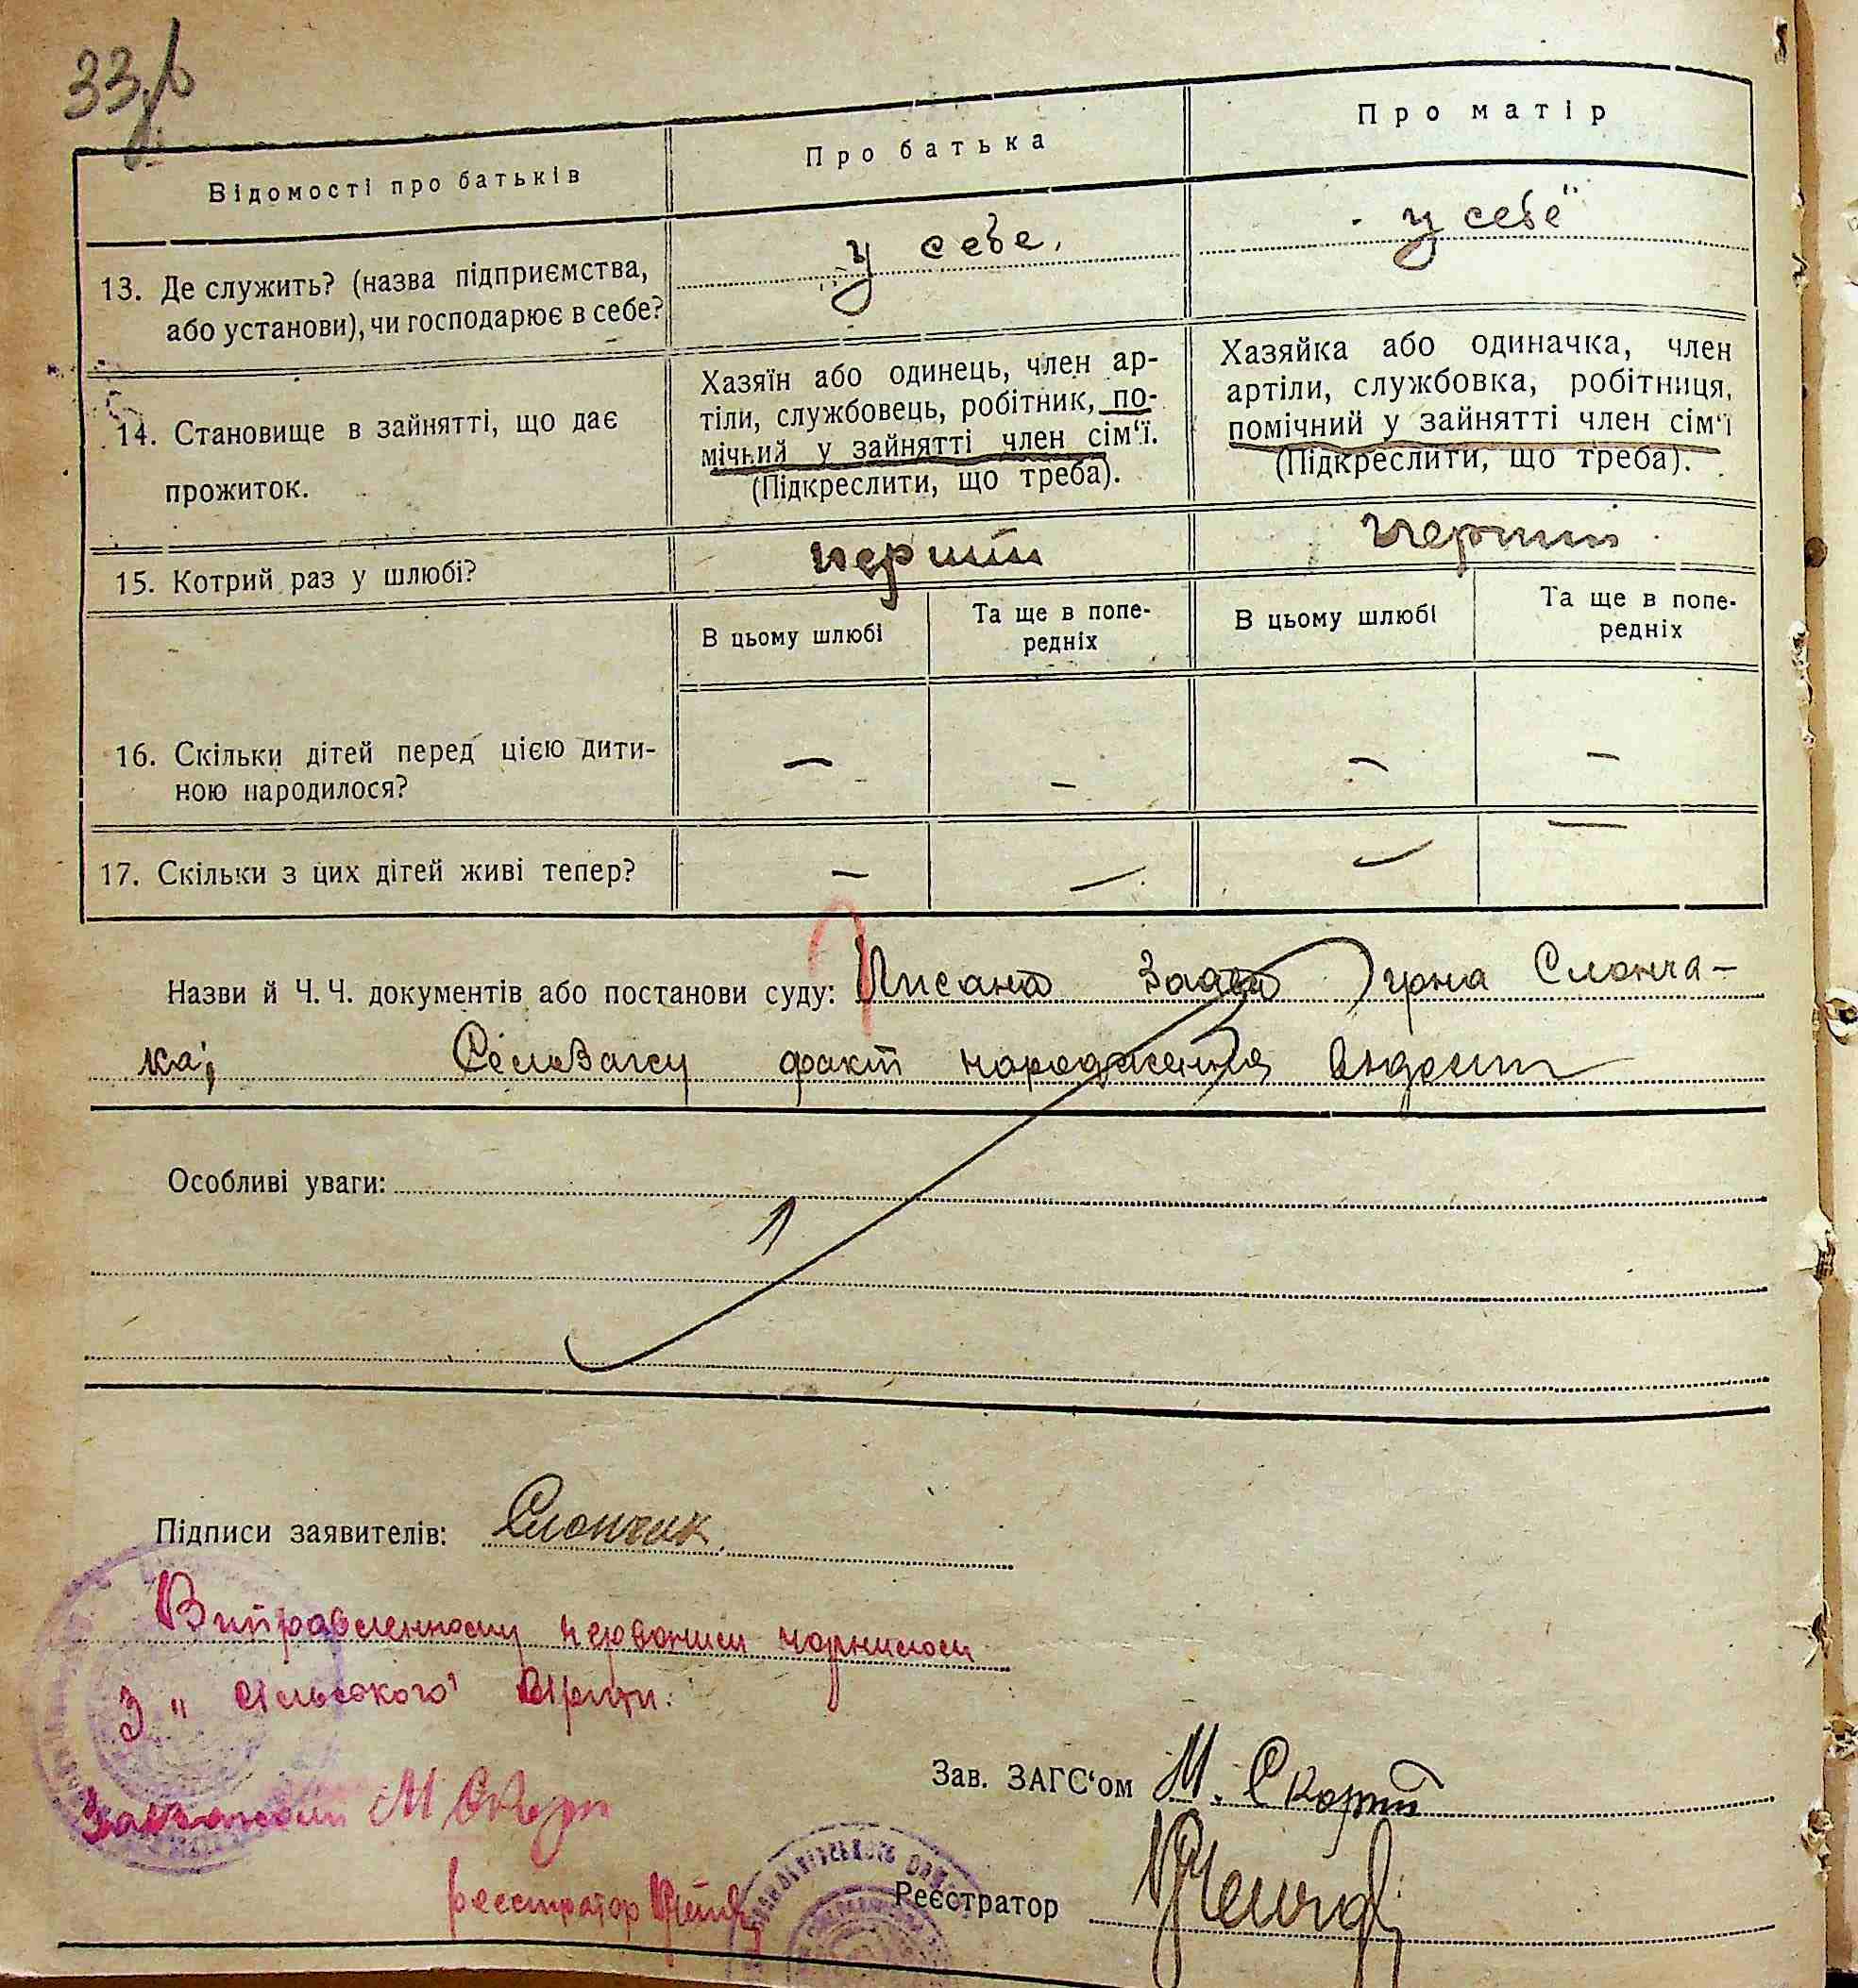 33
Відомості про батьків
Про батька
Про матір
13. Де служить? (назва підприємства,
або установи), чи господарює в себе?
у себе.
у себе
14. Становище в зайнятті, що дає
прожиток.
Хазяїн або одинець, член ар-
тіли, службовець, робітник, по-
мічний у зайнятті член сім'ї.
(Підкреслити, що треба).
Хазяйка або одиначка, член
артіли, службовка, робітниця,
помічний у зайнятті член сім'ї
(Підкреслити, що треба).
15. Котрий раз у шлюбі?
перший
перший
В цьому шлюбі
Та ще в попе-
редніх
В цьому шлюбі
Та ще в попе-
редніх
16. Скільки дітей перед цією дити-
ною народилося?
— — — —
17. Скільки з цих дітей живі тепер?
— — — —
Назви й Ч. Ч. документів або постанови суду: Писана Заява гр-на Слонча-
ка; факт народження
Особливі уваги:
Підписи заявителів: Слончак
Виправленному червоними чорнилом
З "сільського"
М Скорт
Зав. ЗАГС'ом М. Скорт
реєстратор
Реєстратор